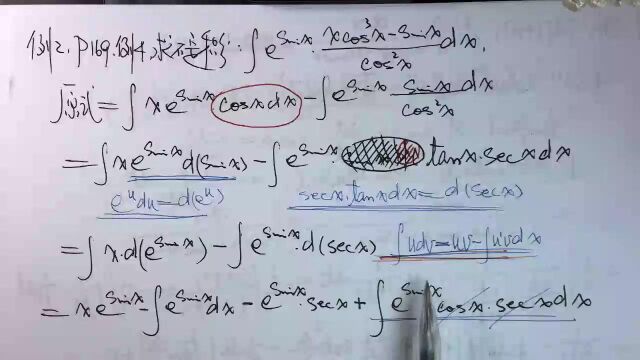 例2. P169.例4.求不定积分: ∫e^{sinx}·\frac{xcos³x-sinx}{cos²x}dx.
原式=∫xe^{sinx}cosxdx-∫e^{sinx}\frac{sinx}{cos²x}dx
=∫xe^{sinx}d(sinx)-∫e^{sinx}·tanx·secxdx
e^u du=d(e^u) secx·tanxdx=d(secx)
=∫x·d(e^{sinx})-∫e^{sinx}·d(secx) ∫udv=uv-∫u'vdx
=xe^{sinx}-∫e^{sinx}dx-e^{sinx}·secx+∫e^{sinx}cosx·secxdx